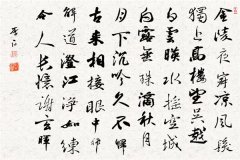 金陵夜寂凉風發
獨上高樓望吳越
白雲映水搖空城
白露垂珠滴秋月
月下沉吟久不歸
古來相接眼中稀
解道澄江淨如練
令人長憶謝玄暉